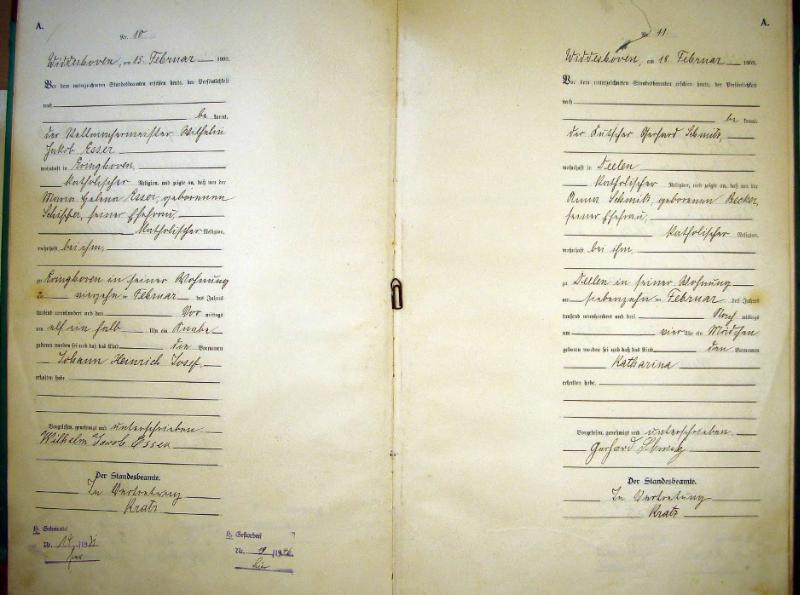 A.
Nr. 10
Widdeshoven, am 15. Februar 1903.
Vor dem unterzeichneten Standesbeamten erschien heute, der Persönlichkeit
nach
be kannt,
der Stellmachermeister Wilhelm
Jakob Esser
wohnhaft in Ramrath
katholischer Religion, und zeigte an, daß von der
Maria Helena Esser, geborenen
Schiffer, seiner Ehefrau,
katholischer Religion,
wohnhaft bei ihm,
zu in seiner Wohnung
am vierzehn ten Februar des Jahres
tausend neunhundert und drei Vor mittags
um elf ein halb Uhr ein Knabe
geboren worden sei und daß das Kind die Vornamen
Johann Heinrich Josef
erhalten habe
Vorgelesen, genehmigt und unterschrieben
Wilhelm Jacob Esser
Der Standesbeamte.
In Vertretung
Kratz
Nr. 14
Nr. 19
hier
A.
Nr. 11.
Widdeshoven, am 18. Februar 1903.
Vor dem unterzeichneten Standesbeamten erschien heute, der Persönlichkeit
nach
be kannt,
der Gerhard Schmitz,
wohnhaft in Deelen
katholischer Religion, und zeigte an, daß von der
Anna Schmitz, geborenen Becker,
seiner Ehefrau,
katholischer Religion,
wohnhaft bei ihm,
zu Deelen in seiner Wohnung
am siebenzehn ten Februar des Jahres
tausend neunhundert und drei Nach mittags
um vier Uhr ein Mädchen
geboren worden sei und daß das Kind den Vornamen
Katharina
erhalten habe.
Vorgelesen, genehmigt und unterschrieben
Gerhard Schmitz
Der Standesbeamte.
In Vertretung
Kratz